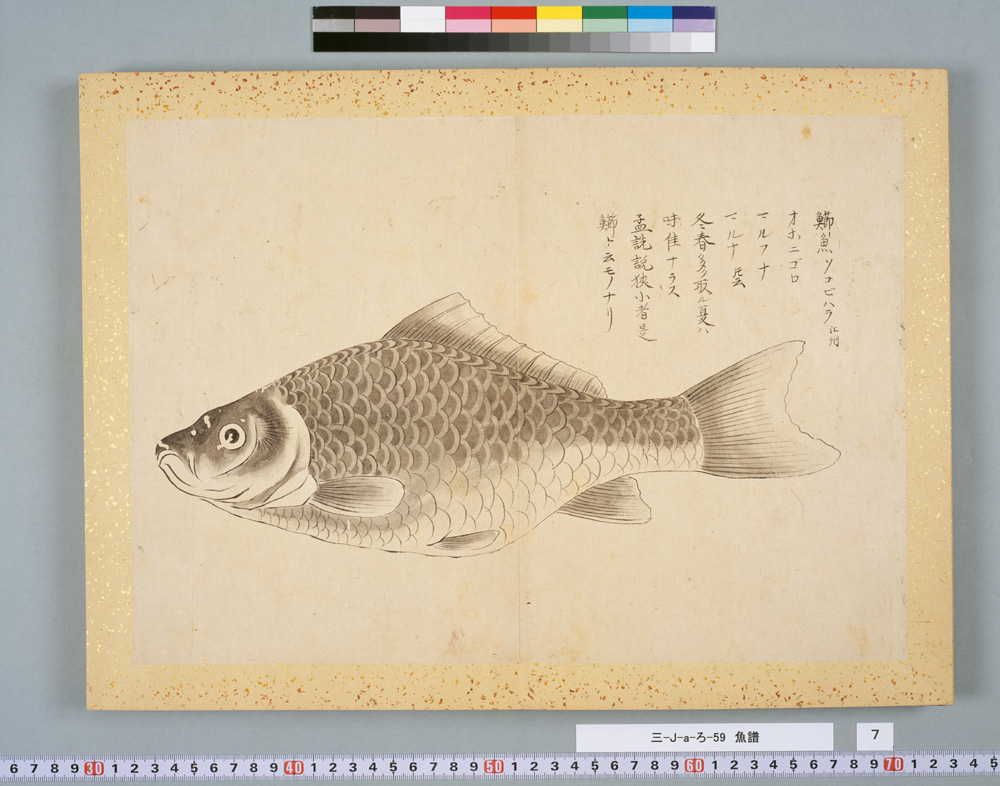 鰤魚 ソコビハラ 江州
オホニゴロ
マルフナ
マルナ 氐云
冬春多ク取ル夏ハ
味佳ナラス
孟詵説狭小者是
鰤ト云モノナリ
三-J-a-ろ-59 魚譜
7
6 7 8 9 30 1 2 3 4 5 6 7 8 9 40 1 2 3 4 5 6 7 8 9 50 1 2 3 4 5 6 7 8 9 60 1 2 3 4 5 6 7 8 9 70 1 2 3 4 5